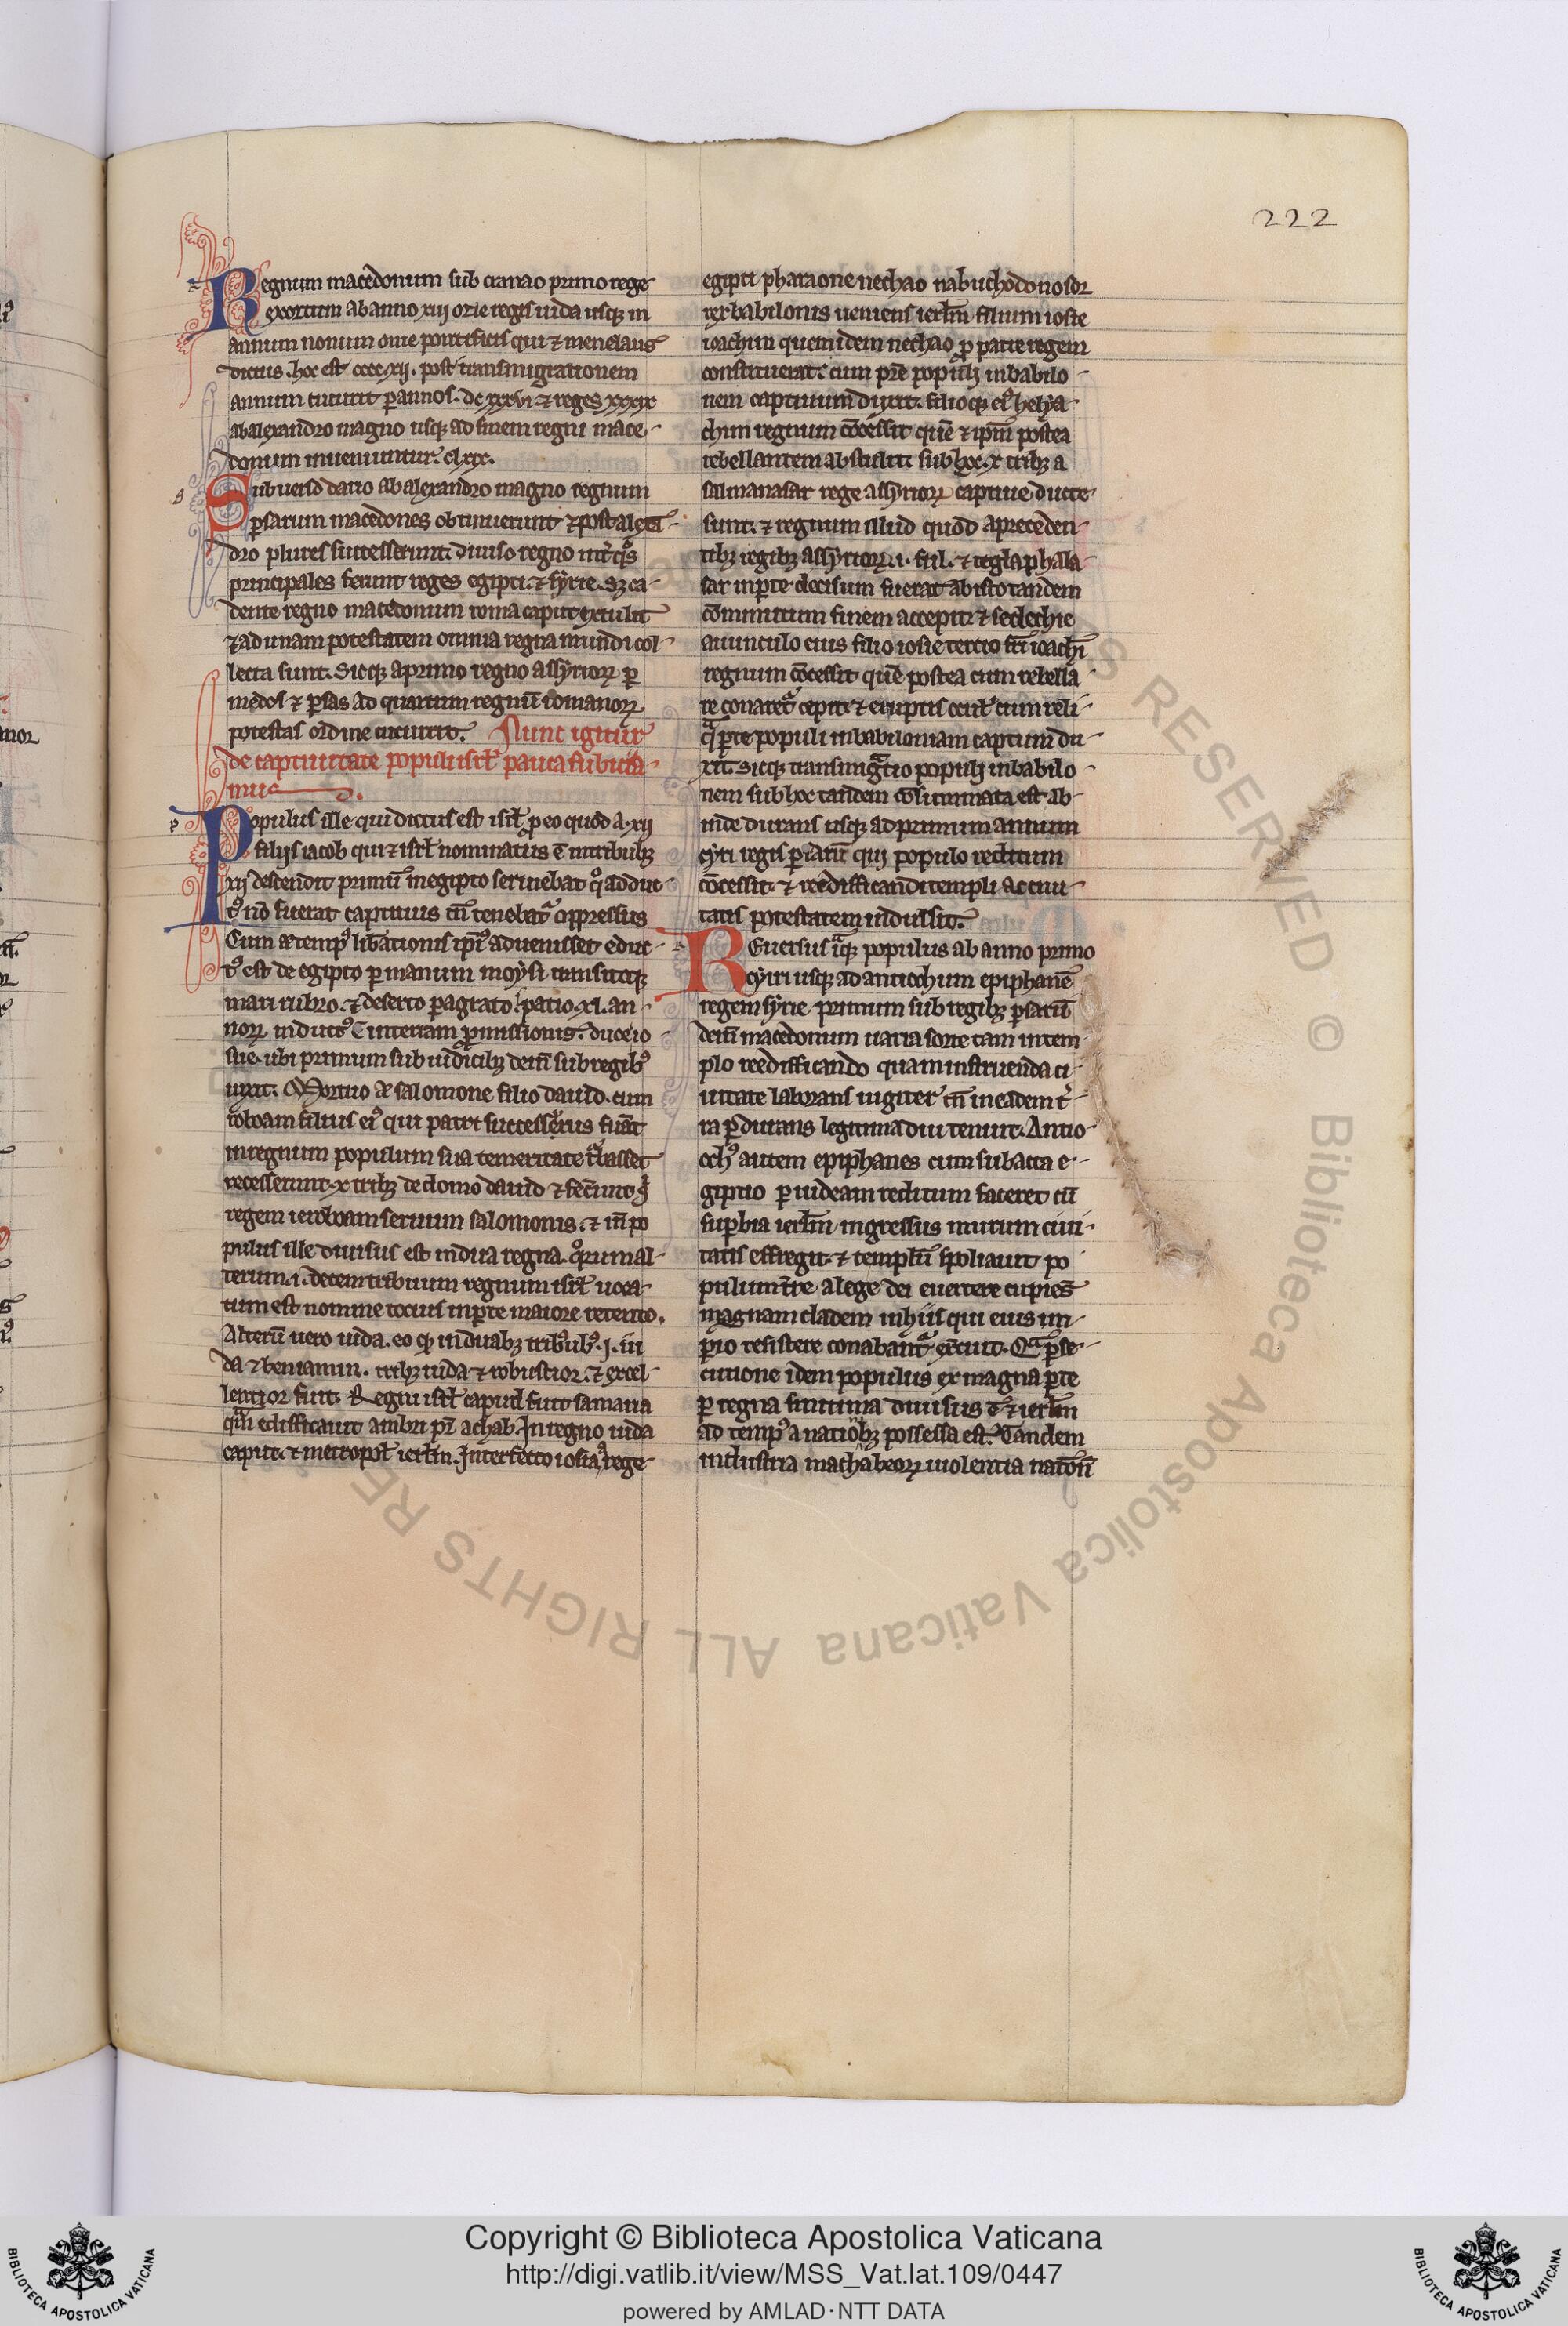 222
Regnum macedonum sub cranao primo rege
exortum ab anno xiii ozie regis iuda usqꝫ in
annum nonum onie pontificis qui ⁊ menelaus
dictus. hoc est cccc.xii. post transmigrationem
annum cucurrit ꝑ annos. dc xxxvi ⁊ reges xxxix
ab alexandro magno usqꝫ ad finem regni mace-
donum inueniuntur. clxix.
s
Subuerso dario ab alexandro magno regnum
ꝑsarum macedones obtinuerunt ⁊ post alexā-
dro plures successerunt. diuiso regno
principales fuerunt reges egipti ⁊ syrie. sꝫ ca-
dente regno macedonum roma caput extulit
⁊ ad unam potestatem omnia regna mundi col-
lecta sunt. Sicqꝫ a primo regno assyrioꝝ ꝑ
medos ⁊ ꝑsas ad quartum regnū romanoꝝ
potestas ordine cucurrit. Nunc igitur
de captiuitate populi isrł pauca subicia-
mus
p
Populus ille qui dictus est isrł ꝑ eo quod a.xii
filiis iacob qui ⁊ isrł nominatus ē in tribubꝫ
xii descendit primū in egipto
tꝰ nō fuerat captiuus tn̄ tenebatᵣ oppressus
Cum aūtempꝰ libationis ipīꝰ aduenisset educ-
tꝰ est de egipto ꝑ manum moysi transitoqꝫ
mari rubro. ⁊ deserto ꝑagrato spatio.xl. an-
noꝝ inductꝰ ē in terram ꝓmissionis. duce io-
sue. ubi primum sub iudicibꝫ dein̄ sub regibꝰ
uixit. Mortuo aū salomone filio dauid. cum
roboam filius eiꝰ qui patri successurus fuāt
in regnum populum sua temeritate tᵘbasset
recesserunt.x tribꝫ de domo dauid ⁊ fecunt s
regem ieroboam seruum salomonis. ⁊ po
pulus ille diuisus est in dua regna. qᵒrum al-
terum.i. decem tribuum regnum isrł uoca-
tum est nomine tocius in ꝑte maiore retento.
Alterū uero iuda. eo ꝙ in duabꝫ tribubꝰ.i. iu
da ⁊ beniamin. tribꝫ iuda ⁊ robustior. ⁊ excel-
lentior fuit. Regni isrł caput fuit samaria
quā edificauit ambri pr̄ achab. In regno iuda
capite. ⁊ metropoł ierłm. Interfecto iosia a rege
egipti pharaone nechao nabuchodonosor
rex babilonis ueniens ierłm filium iosie
ioachim quem idem nechao ꝓ patre regem
constituerat. cum ꝑte populi in babilo-
nem captiuum duxit. filioqꝫ eiꝰ helya-
chim regnum cōcessit quē ⁊ ipm̄ postea
rebellantem abstulit. sub hoc.x tribꝫ a
salmanasar rege assyrioꝝ captiue ducte
sunt. ⁊ regnum illud quod a preceden-
tibꝫ regibꝫ assyrioꝝ.i. ful. ⁊ teglaphala-
sar in ꝑte decisum fuerat ab isto tandem
cōminutum finem accepit. ⁊ sedechie
auunculo eius filio iosie tercio fr̄i ioachī
regnum cōcessit quē postea cum rebella
re conaretᵣ cepit. ⁊ erutis oculꝰ cum reli-
qᵃ ꝑte populi in babiloniam captum du-
xit. Sicqꝫ transmigᵃtio populi in babilo-
nem sub hoc tandem cōsummata est ab-
inde durans usqꝫ ad primum annum
cyri regis ꝑsarū qui populo reditum
cōcessit. ⁊ reedifficandi templi ac ciui-
tatis potestatem indulsit.
r
Reuersus itaqꝫ populus ab anno primo
cyri usqꝫ ad antiochum epiphanē
regem syrie. primum sub regibꝫ ꝑsarū
dein̄ macedonum uaria sorte tam in tem
plo reedifficando quam instruenda ci-
uitate laborans iugiter tn̄ in eadem t̄-
ra ꝑdurans legitima diu tenuit. Antio-
chꝰ autem epiphanes cum subacta e-
gipto ꝑ iudeam reditum faceret cū
suꝑbia ierłm ingressus murum ciui-
tatis effregit. ⁊ templū spoliauit po
pulum a lege dei euertere cupiens
magnam cladem in hiis qui eius im-
ꝑio resistere conabantᵣ exercuit. Qᵃ ꝑse-
cutione idem populus ex magna ꝑte
ꝑ regna finitima diuisus ē. ⁊ ierłm
ad tempꝰ a nationibꝫ possessa est. Tandem
industria machabeoꝝ uiolentia nationū
Copyright © Biblioteca Apostolica Vaticana
http://digi.vatlib.it/view/MSS_Vat.lat.109/0447
powered by AMLAD·NTT DATA
BIBLIOTECA APOSTOLICA VATICANA
BIBLIOTECA APOSTOLICA VATICANA
ALL RIGHTS RESERVED © Biblioteca Apostolica Vaticana